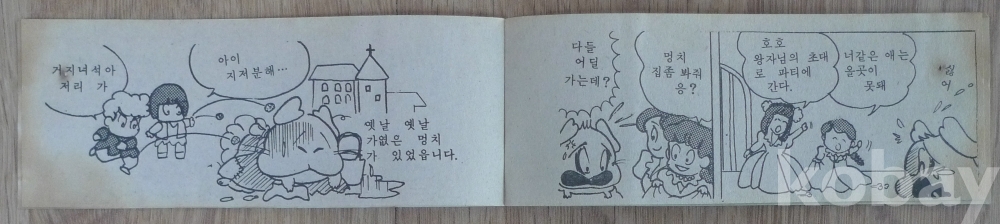 거지녀석아
저리 가
아이
지저분해…
옛날 옛날
가없은 멍치
가 있었읍니다.
다들
어딜
가는데?
멍치
집좀 봐줘
응?
호호
왕자님의 초대
로 파티에
간다.
너같은 애는
올곳이
못돼
싫
어
kobay